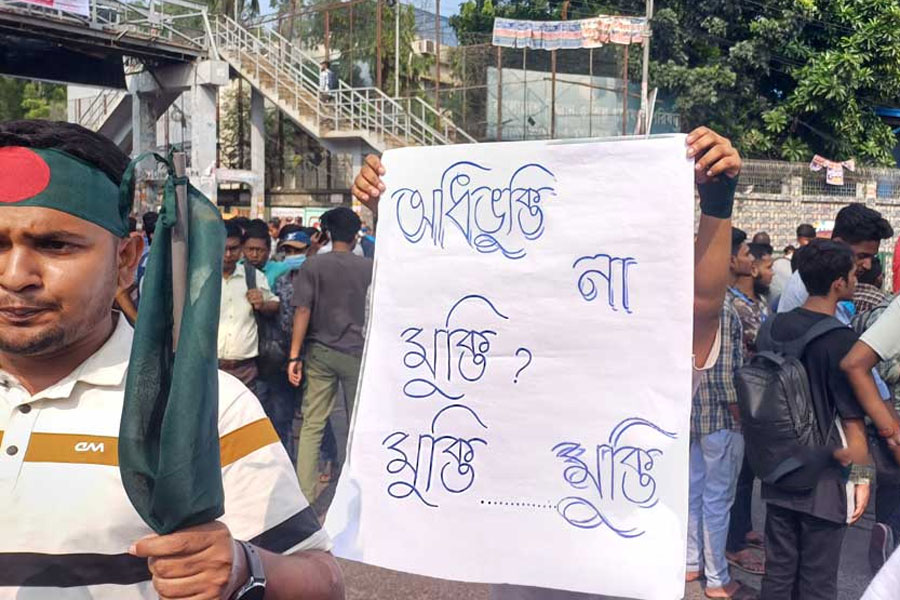 অধিভুক্তি
না
মুক্তি ?
মুক্তি ............ মুক্তি